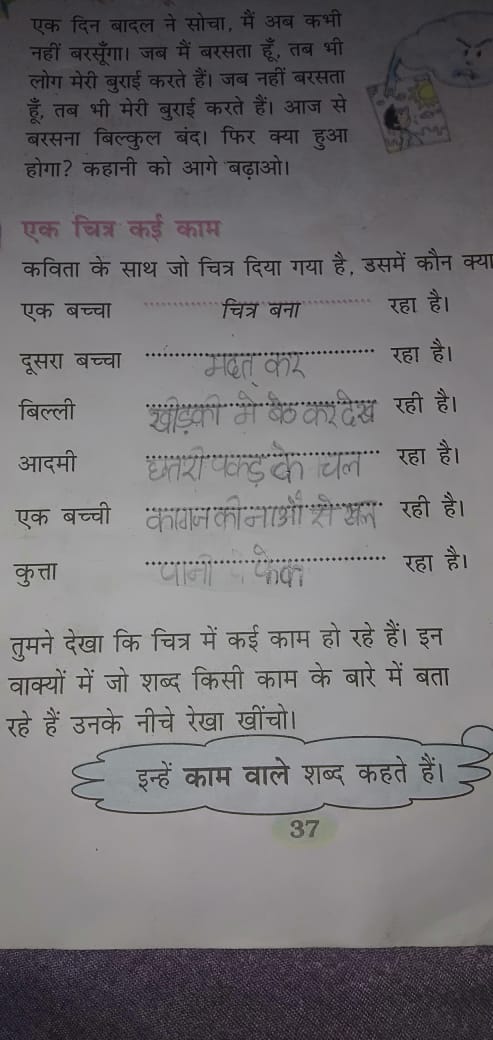 एक दिन बादल ने सोचा, मैं अब कभी
नहीं बरसूँगा। जब मैं बरसता हूँ, तब भी
लोग मेरी बुराई करते हैं। जब नहीं बरसता
हूँ, तब भी मेरी बुराई करते हैं। आज से
बरसना बिल्कुल बंद। फिर क्या हुआ
होगा? कहानी को आगे बढ़ाओ।
एक चित्र कई काम
कविता के साथ जो चित्र दिया गया है, उसमें कौन क्या
एक बच्चा चित्र बना रहा है।
दूसरा बच्चा मदत् कर रहा है।
बिल्ली खीड़की मे बेठ कर देख रही है।
आदमी छतरी पकड़ के चल रहा है।
एक बच्ची कागज की नाओ से खेल रही है।
कुत्ता पानी फेक रहा है।
तुमने देखा कि चित्र में कई काम हो रहे हैं। इन
वाक्यों में जो शब्द किसी काम के बारे में बता
रहे हैं उनके नीचे रेखा खींचो।
इन्हें काम वाले शब्द कहते हैं।
37